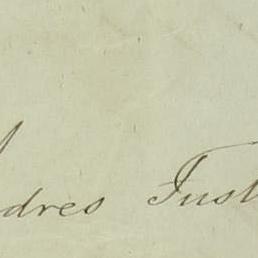 dres Just